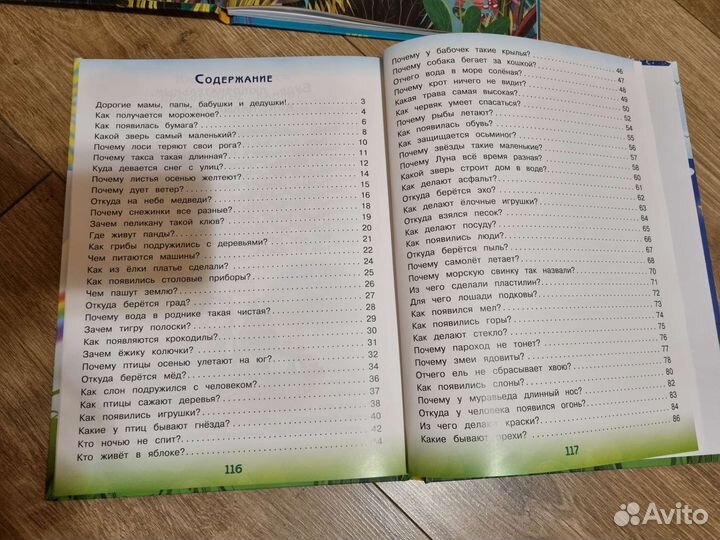 СОДЕРЖАНИЕ
Дорогие мамы, папы, бабушки и дедушки! 3
Как получается мороженое? 4
Как появилась бумага? 6
Какой зверь самый маленький? 8
Почему лоси теряют свои рога? 10
Почему такса такая длинная? 11
Куда девается снег с улиц? 12
Почему листья осенью желтеют? 14
Почему дует ветер? 15
Откуда на небе медведи? 16
Почему снежинки все разные? 18
Зачем пеликану такой клюв? 19
Где живут панды? 20
Как грибы подружились с деревьями? 21
Чем питаются машины? 22
Как из ёлки платье сделали? 24
Как появились столовые приборы? 25
Чем пашут землю? 26
Откуда берётся град? 27
Почему вода в роднике такая чистая? 28
Зачем тигру полоски? 29
Как появляются крокодилы? 30
Зачем ёжику колючки? 31
Почему птицы осенью улетают на юг? 32
Откуда берётся мёд? 34
Как слон подружился с человеком? 36
Как птицы сажают деревья? 37
Как появились игрушки? 38
Какие у птиц бывают гнёзда? 40
Кто ночью не спит? 42
Кто живёт в яблоке?
116
Почему у бабочек такие крылья?
Почему собака бегает за кошкой? 46
Отчего вода в море солёная? 47
Почему крот ничего не видит? 48
Какая трава самая высокая? 49
Как червяк умеет спасаться? 50
Почему рыбы летают? 52
Как появилась обувь? 54
Как защищается осьминог? 55
Почему звёзды такие маленькие? 56
Почему Луна всё время разная? 57
Какой зверь строит дом в воде? 58
Как делают асфальт? 60
Откуда берётся эхо? 61
Как делают ёлочные игрушки? 62
Откуда взялся песок? 63
Как делают посуду? 64
Как появились люди? 65
Откуда берётся пыль? 66
Почему самолёт летает? 67
Почему морскую свинку так назвали? 68
Из чего сделали пластилин? 70
Для чего лошади подковы? 71
Как появился мел? 72
Как появились горы? 74
Как делают стекло? 75
Почему пароход не тонет? 76
Почему змеи ядовиты? 77
Отчего ель не сбрасывает хвою? 78
Как появились слоны? 80
Почему у муравьеда длинный нос? 82
Откуда у человека появился огонь? 83
Из чего делают краски? 84
Какие бывают орехи? 86
117
Avito